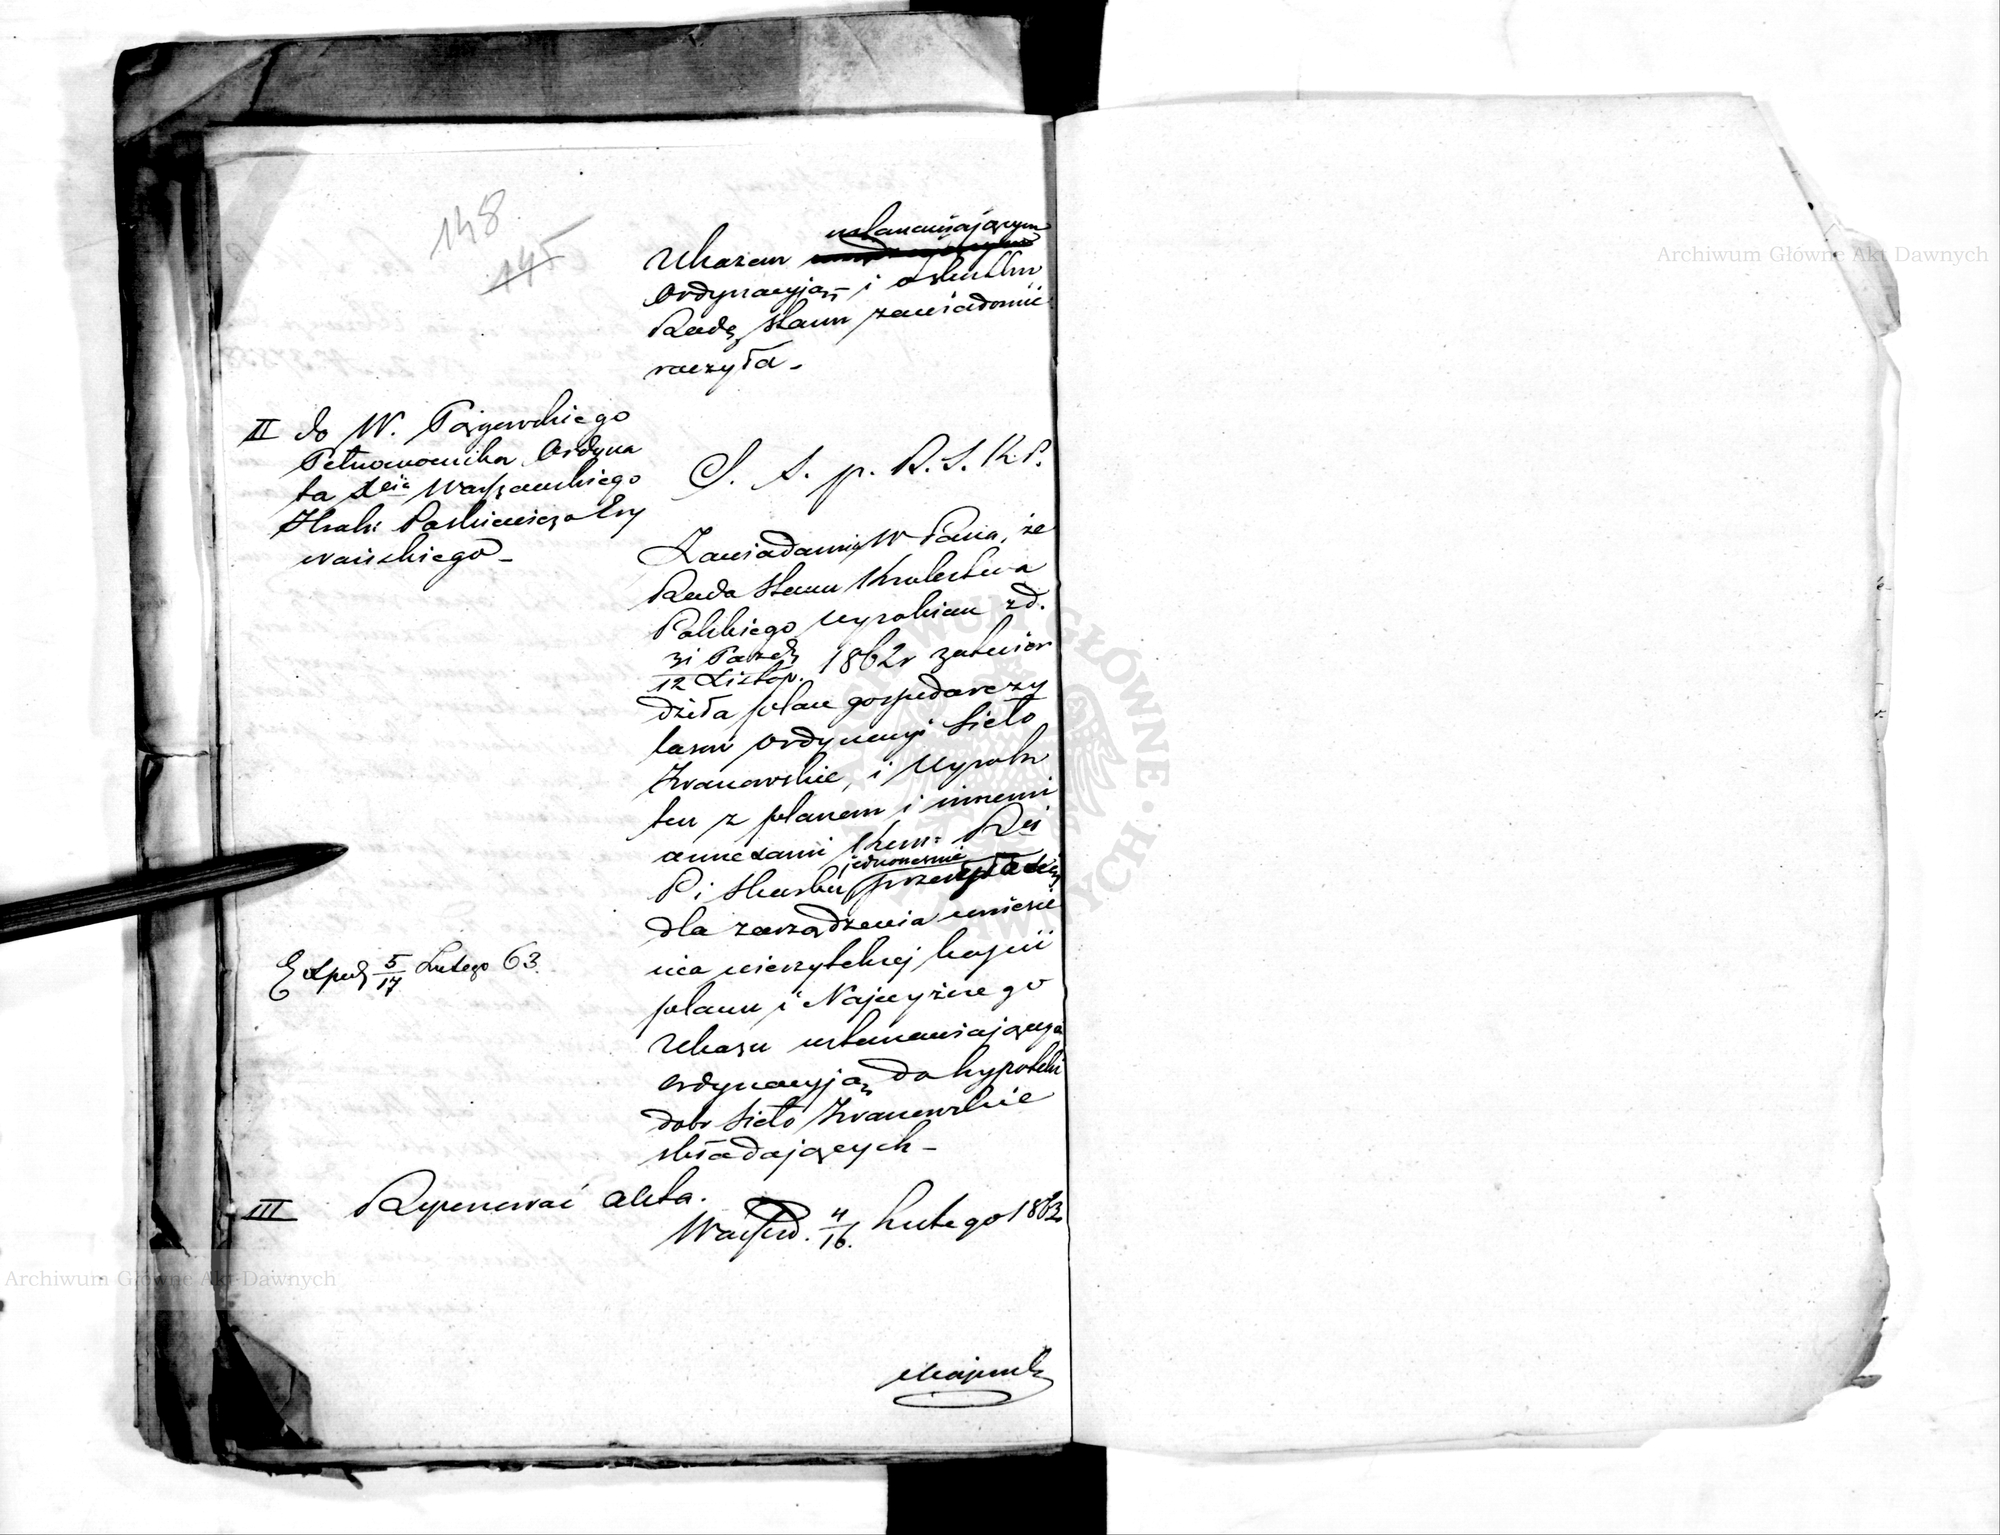 148
145
ustanawiającym
Ukazem
Ordynacyją i o skutku
Radę Stanu zawiadomić
raczyła -
II do W.
Pełnomocnika Ordyna
ta Xcia Warszawskiego
Hrabi Paskiewicza Ery
wańskiego -
S. S. p. R. S. K. P.
Zawiadamia W Pana, że
Rada Stanu Królestwa
Polskiego wyrokiem z d.
31 Paźdz
12 Listop. 1862 r zatwier
dziła plan gospodarczy
lasów ordynacyi Sieło
Iwanowskie, i Wyrok
ten z planem i innemi
annexami Kom: Rz
jednocześnie
P i Skarbu
dla zarządzenia wniesie
nia wierzytelnej kopii
planu i Najwyższego
Ukazu ustanawiającego
ordynacyją do hypoteki
dóbr Sieło Iwanowskie
składających -
Exped 5/17 Lutego 63.
III Reponować akta.
Warsz d. 4/16. Lutego 1863
Archiwum Główne Akt Dawnych
Archiwum Główne Akt Dawnych